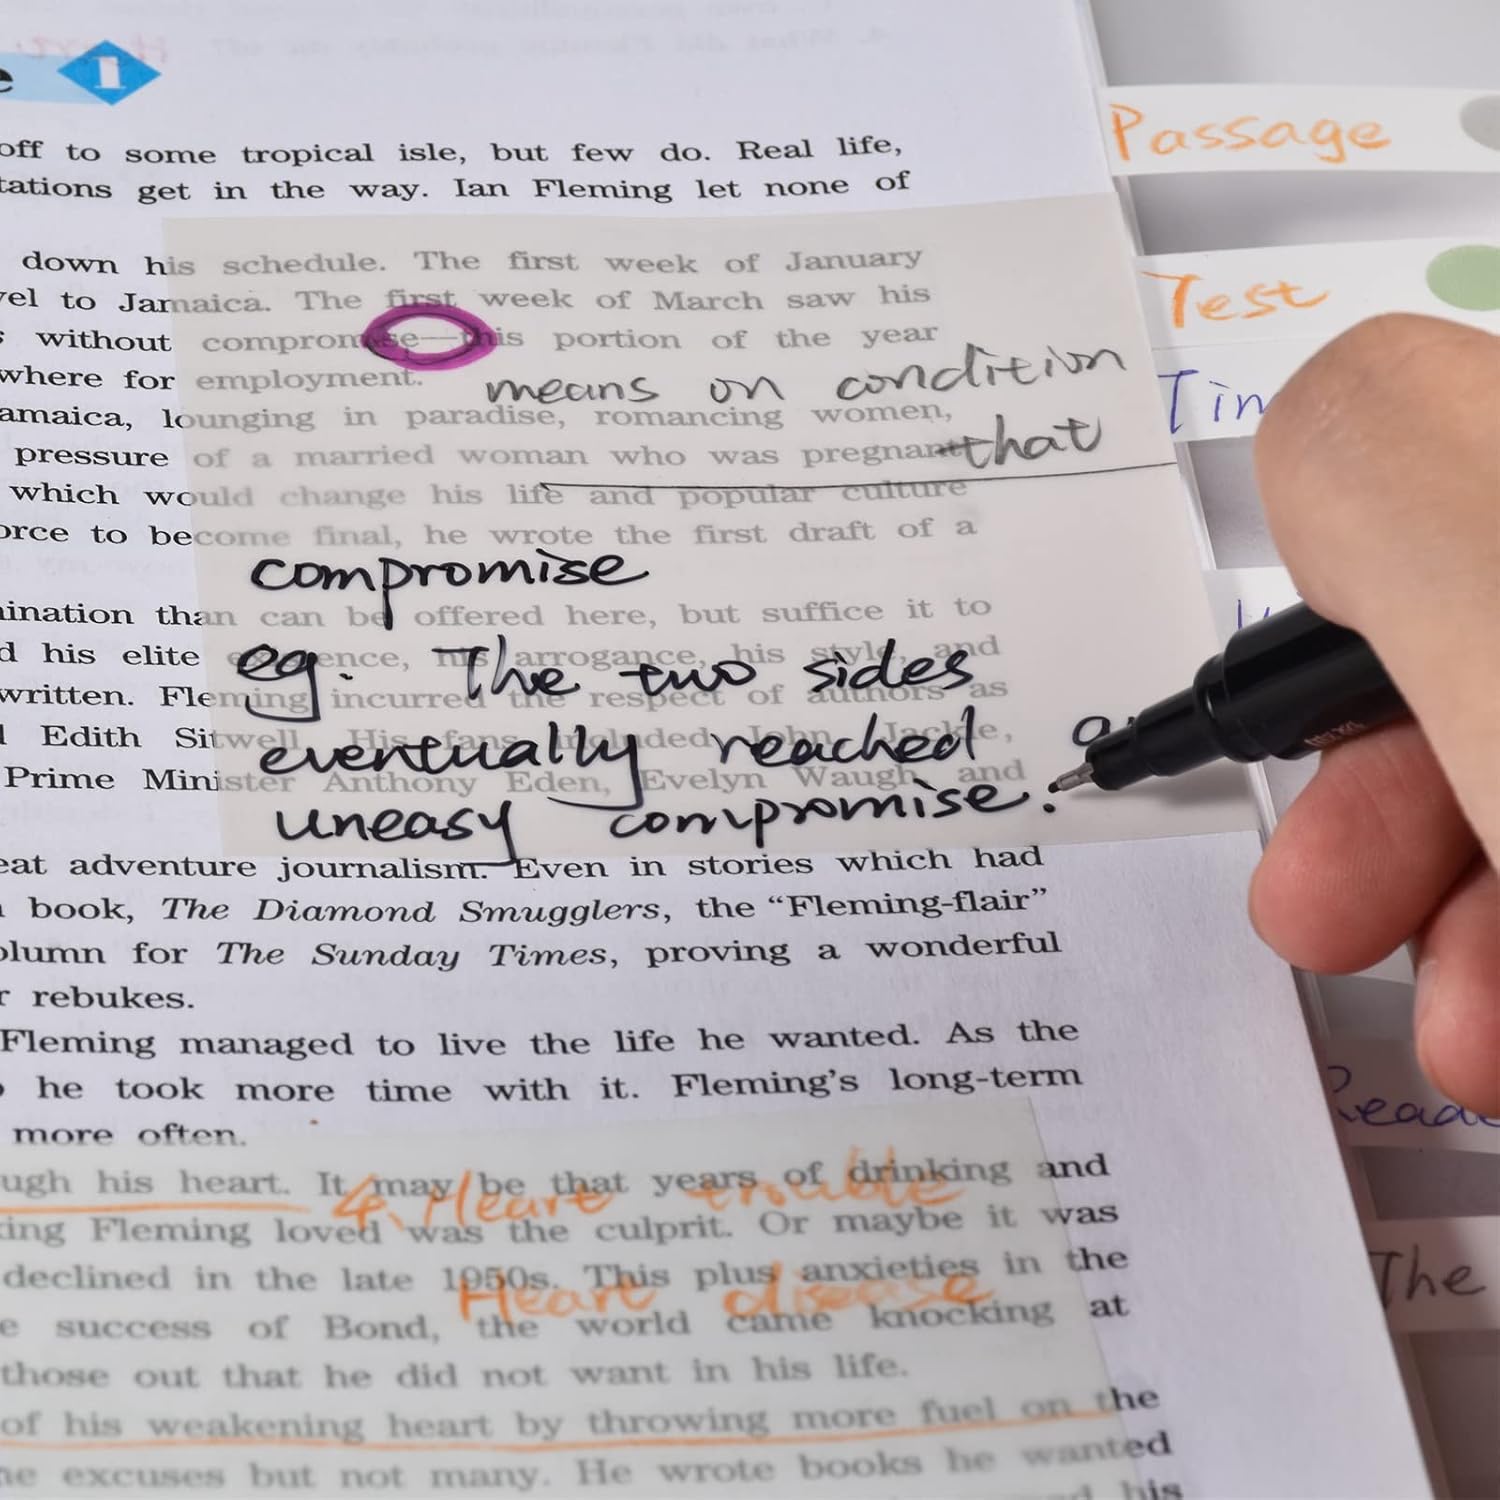 1
off to some tropical isle, but few do. Real life,
get in the way. Ian Fleming let none of
down his schedule. The first week of January
to Jamaica. The first week of March saw his
without compromise—this portion of the year
where for employment.
means on condition
that
lounging in paradise, romancing women,
pressure of a married woman who was pregnant
which would change his life and popular culture
to become final, he wrote the first draft of a
compromise
than can be offered here, but suffice it to
his elite arrogance, his style, and
eg. The two sides
written. Fleming incurred the respect of authors as
Edith Sitwell. His fans included John
eventually reached a
Prime Minister Anthony Eden, Evelyn Waugh, and
uneasy compromise.
adventure journalism. Even in stories which had
book, The Diamond Smugglers, the “Fleming-flair”
for The Sunday Times, proving a wonderful
rebukes.
Fleming managed to live the life he wanted. As the
he took more time with it. Fleming’s long-term
more often.
his heart. It may be that years of drinking and
4. Heart trouble
Fleming loved was the culprit. Or maybe it was
declined in the late 1950s. This plus anxieties in the
Heart disease
success of Bond, the world came knocking at
those out that he did not want in his life.
of his weakening heart by throwing more fuel on the
excuses but not many. He wrote books he wanted
his
Passage
Test
The